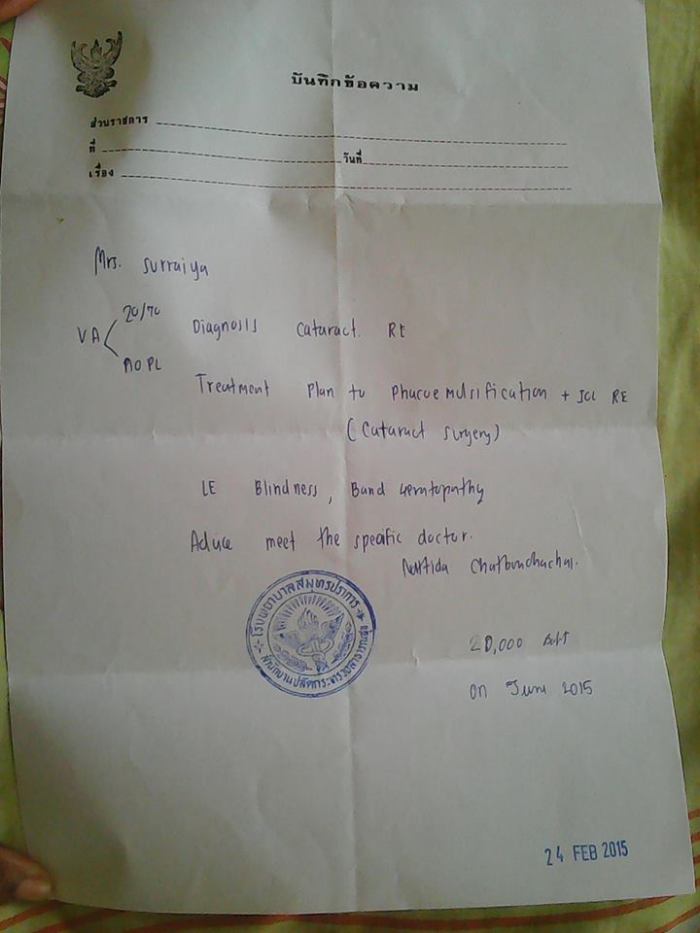 บันทึกข้อความ
ส่วนราชการ
ที่ วันที่
เรื่อง
Mrs. Surraiya
VA 20/70 Diagnosis Cataract. RE
no PL
Treatment Plan to Phacoemulsification + ICL RE
(Cataract surgery)
LE Blindness, Band keratopathy
Advice meet the specific doctor.
Chatbunchachai.
โรงพยาบาลสมุทรปราการ
สำนักงานปลัดกระทรวงสาธารณสุข
20,000 Baht
on June 2015
24 FEB 2015